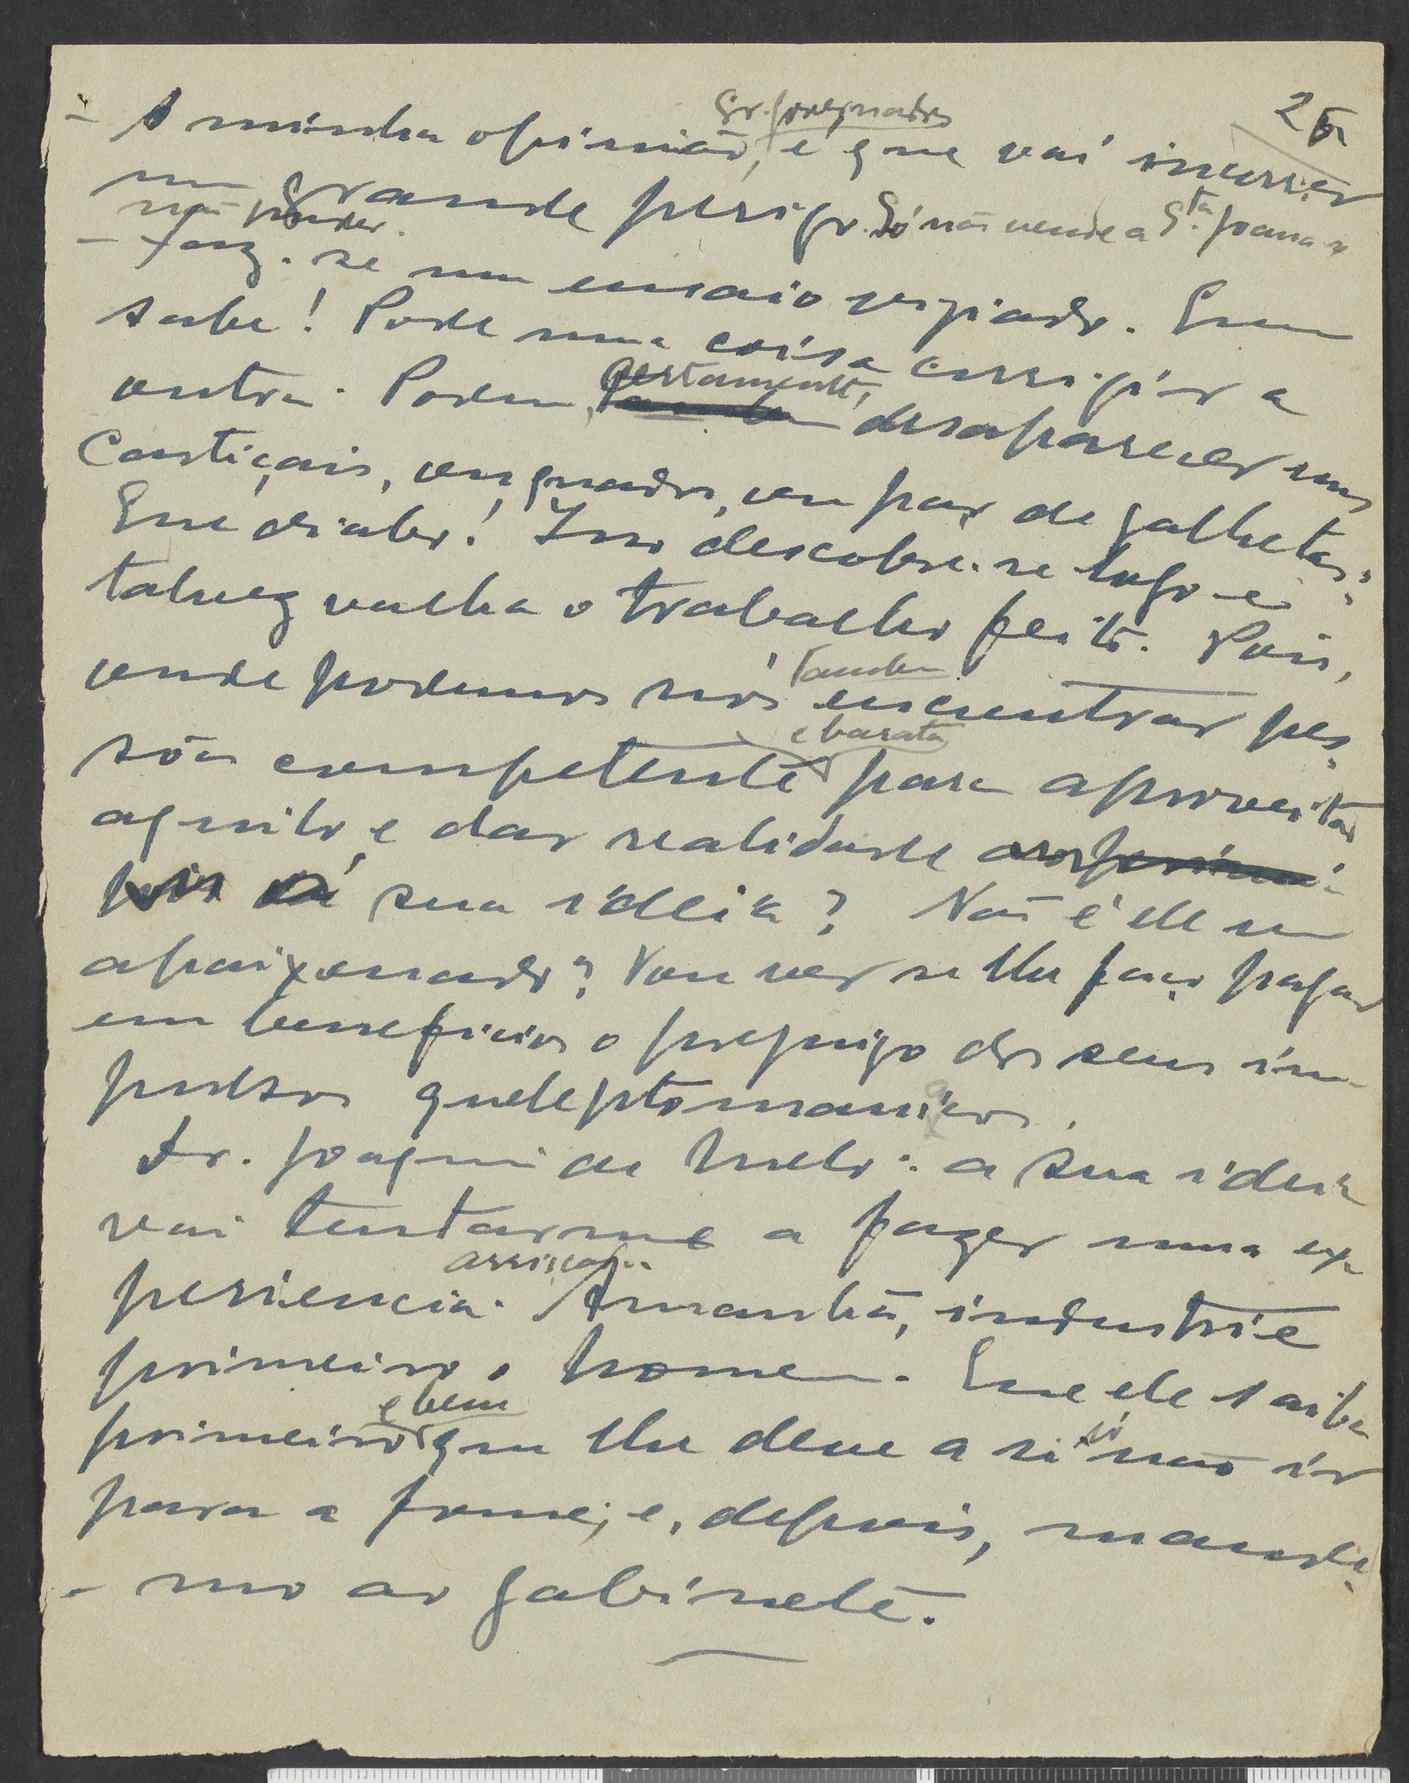 2
- A minha opinião, Sr. é que vai incorrer
num grande perigo. Só não vende a Sta. Joana se
não puder.
- Faz-se um ensaio vigiado. Quem
sabe! Pode uma coisa corrigir a
outra. Podem, certamente, desaparecer uns
castiçais, um quadro, um par de galhetas:
Que diabo! Isso descobre-se logo e
talvez valha o trabalho feito. Pois,
onde podemos nós tambem encontrar pes-
sôa competente e barata para aproveitar
aquilo e dar realidade
á sua idéia? Não é ele um
apaixonado? Vou ver se lhe faço pagar
em beneficios o prejuizo dos seus im-
pulsos queleptomaniacos.
Dr. Joaquim de Melo: a sua ideia
vai tentar-me a fazer uma ex-
periencia arriscada. Amanhã, industrie
primeiro o homem. Que ele saiba
primeiro e bem que lhe deve a si só não ir
para a fome; e, depois, mande-
-mo ao gabinete.